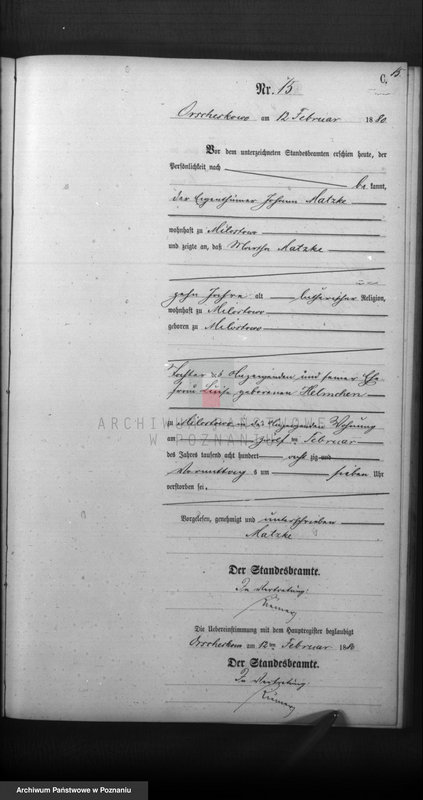 C. 15
Nr. 15
am 12 Februar 1880
Vor dem unterzeichneten Standesbeamten erschien heute, der
Persönlichkeit nach
be kannt,
der Eigenthümer Johann Matzke
wohnhaft zu Milostowo
und zeigte an, daß Martha Matzke
zehn Jahre alt lutherischer Religion,
wohnhaft zu Milostowo
geboren zu Milostowo
Tochter des Anzeigenden und seiner Ehe
frau Luise geborenen Helmchen
ARCHIWUM PAŃSTWOWE
W POZNANIU
zu Milostowo in des Anzeigenden Wohnung
am Februar
des Jahres tausend acht hundert acht zig und
Vormittags um sieben Uhr
verstorben sei.
Vorgelesen, genehmigt und unterschrieben
Matzke
Der Standesbeamte.
In Vertretung:
Die Uebereinstimmung mit dem Hauptregister beglaubigt
am 12ten Februar 1880
Der Standesbeamte.
In Vertretung:
Archiwum Państwowe w Poznaniu